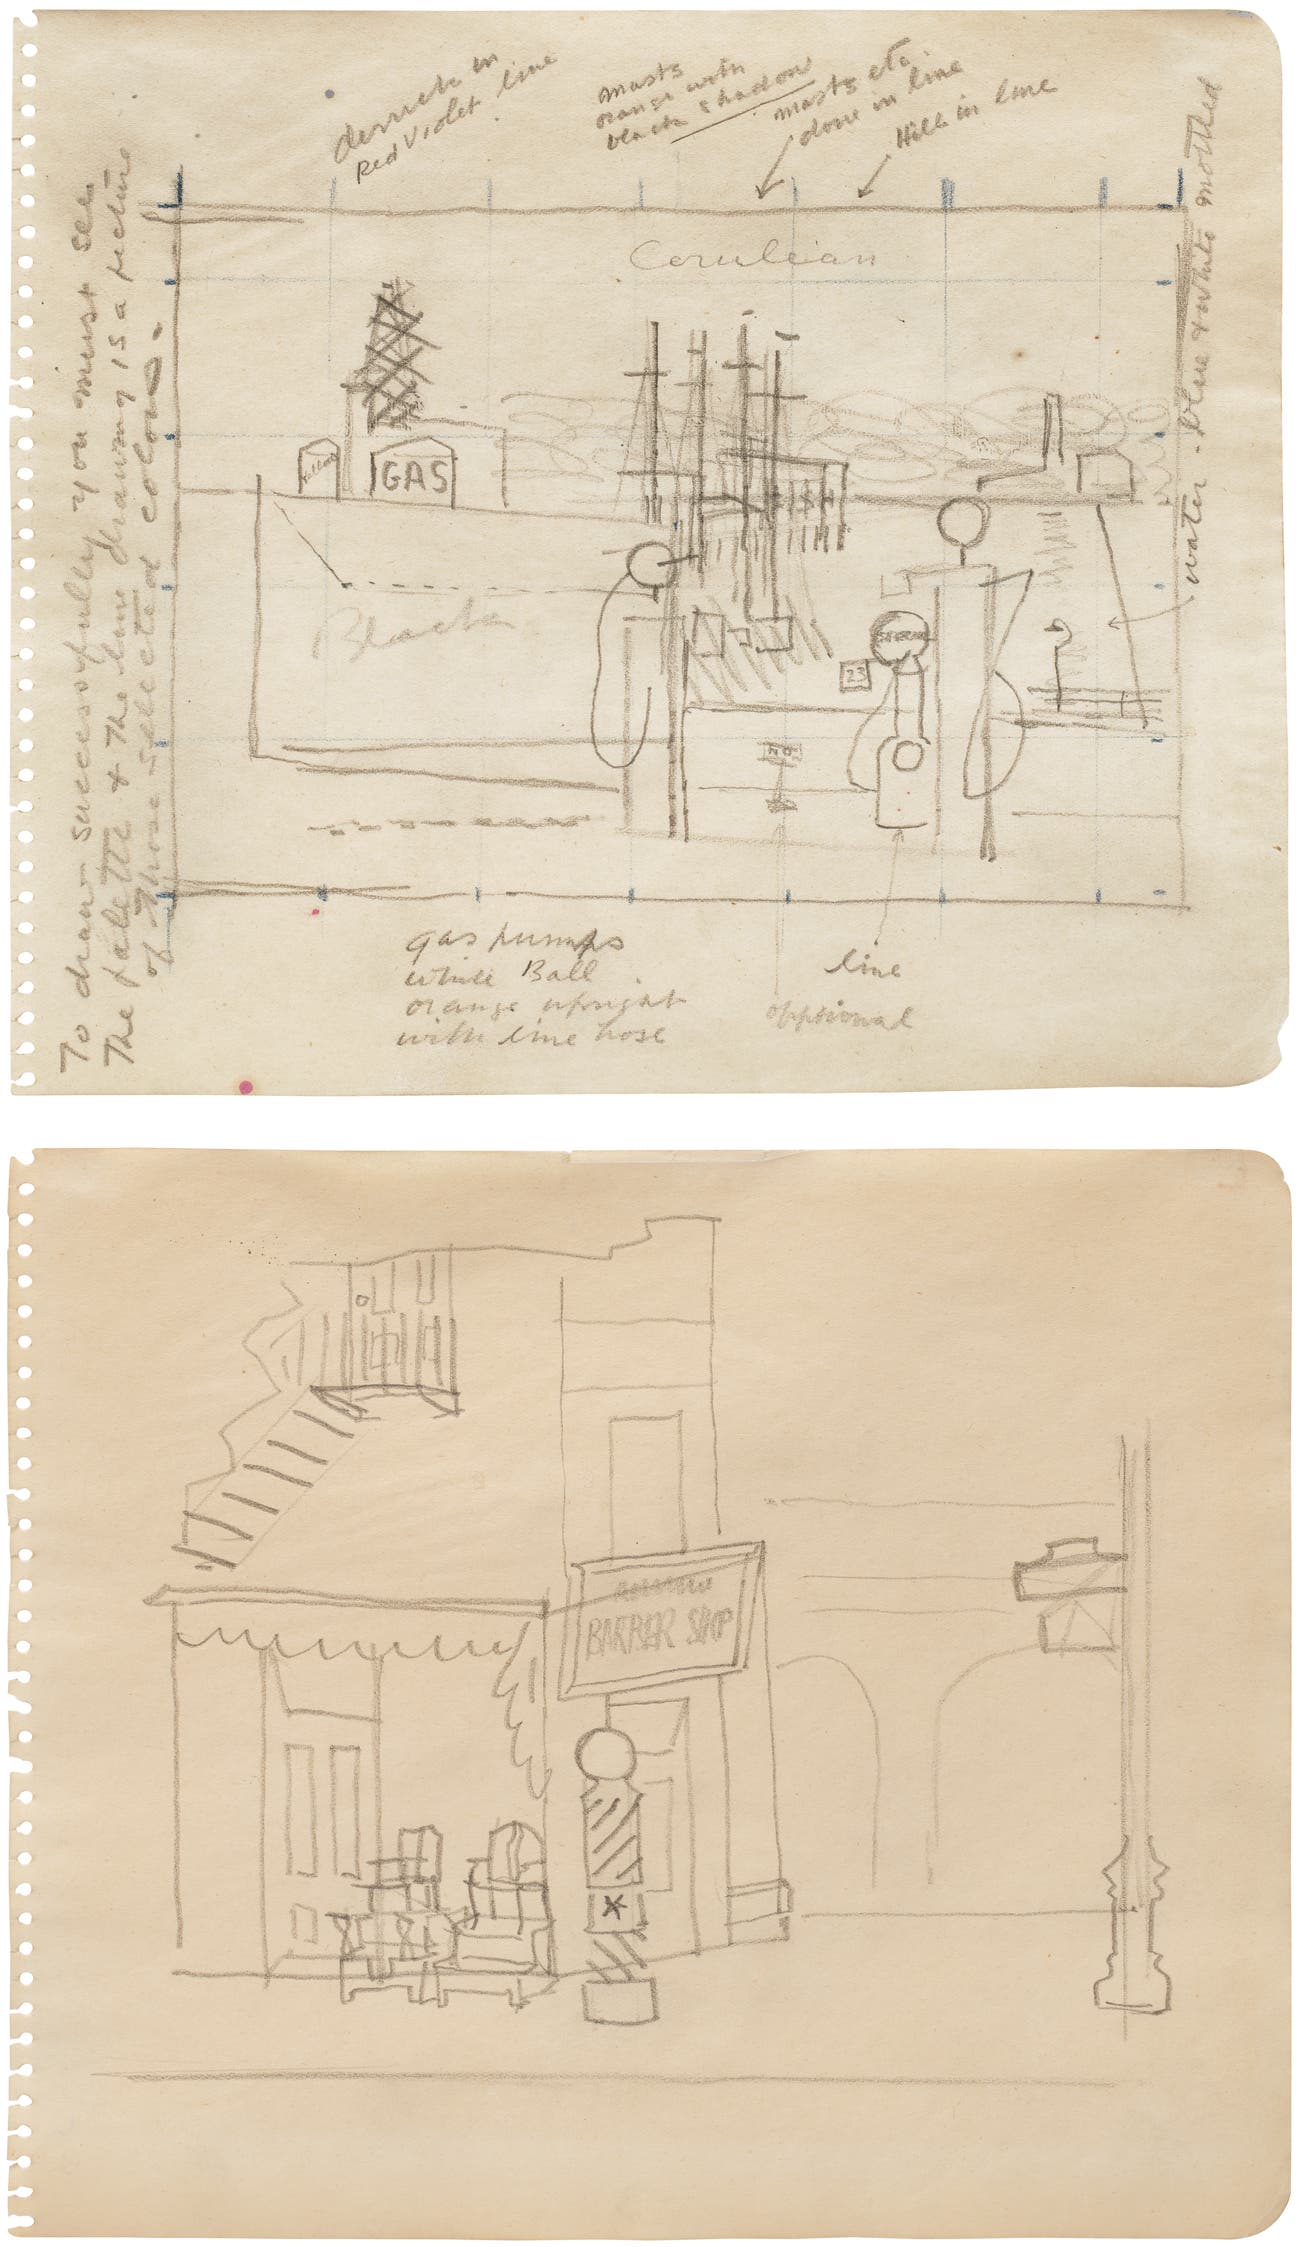 derrick in
Red Violet line
masts
orange with
black shadow
masts etc
done in line
Hill in line
water - blue & white mottled
To draw successfully you must see
The palette & the line drawing is a picture
of those selected colors.
Cerulean
GAS
Black
23
gas pumps
white Ball
orange upright
with line hose
line
opptional
BARBER SHOP